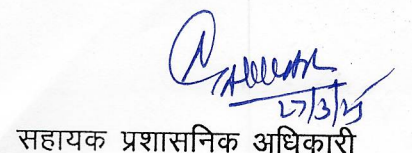 27/3/25
सहायक प्रशासनिक अधिकारी